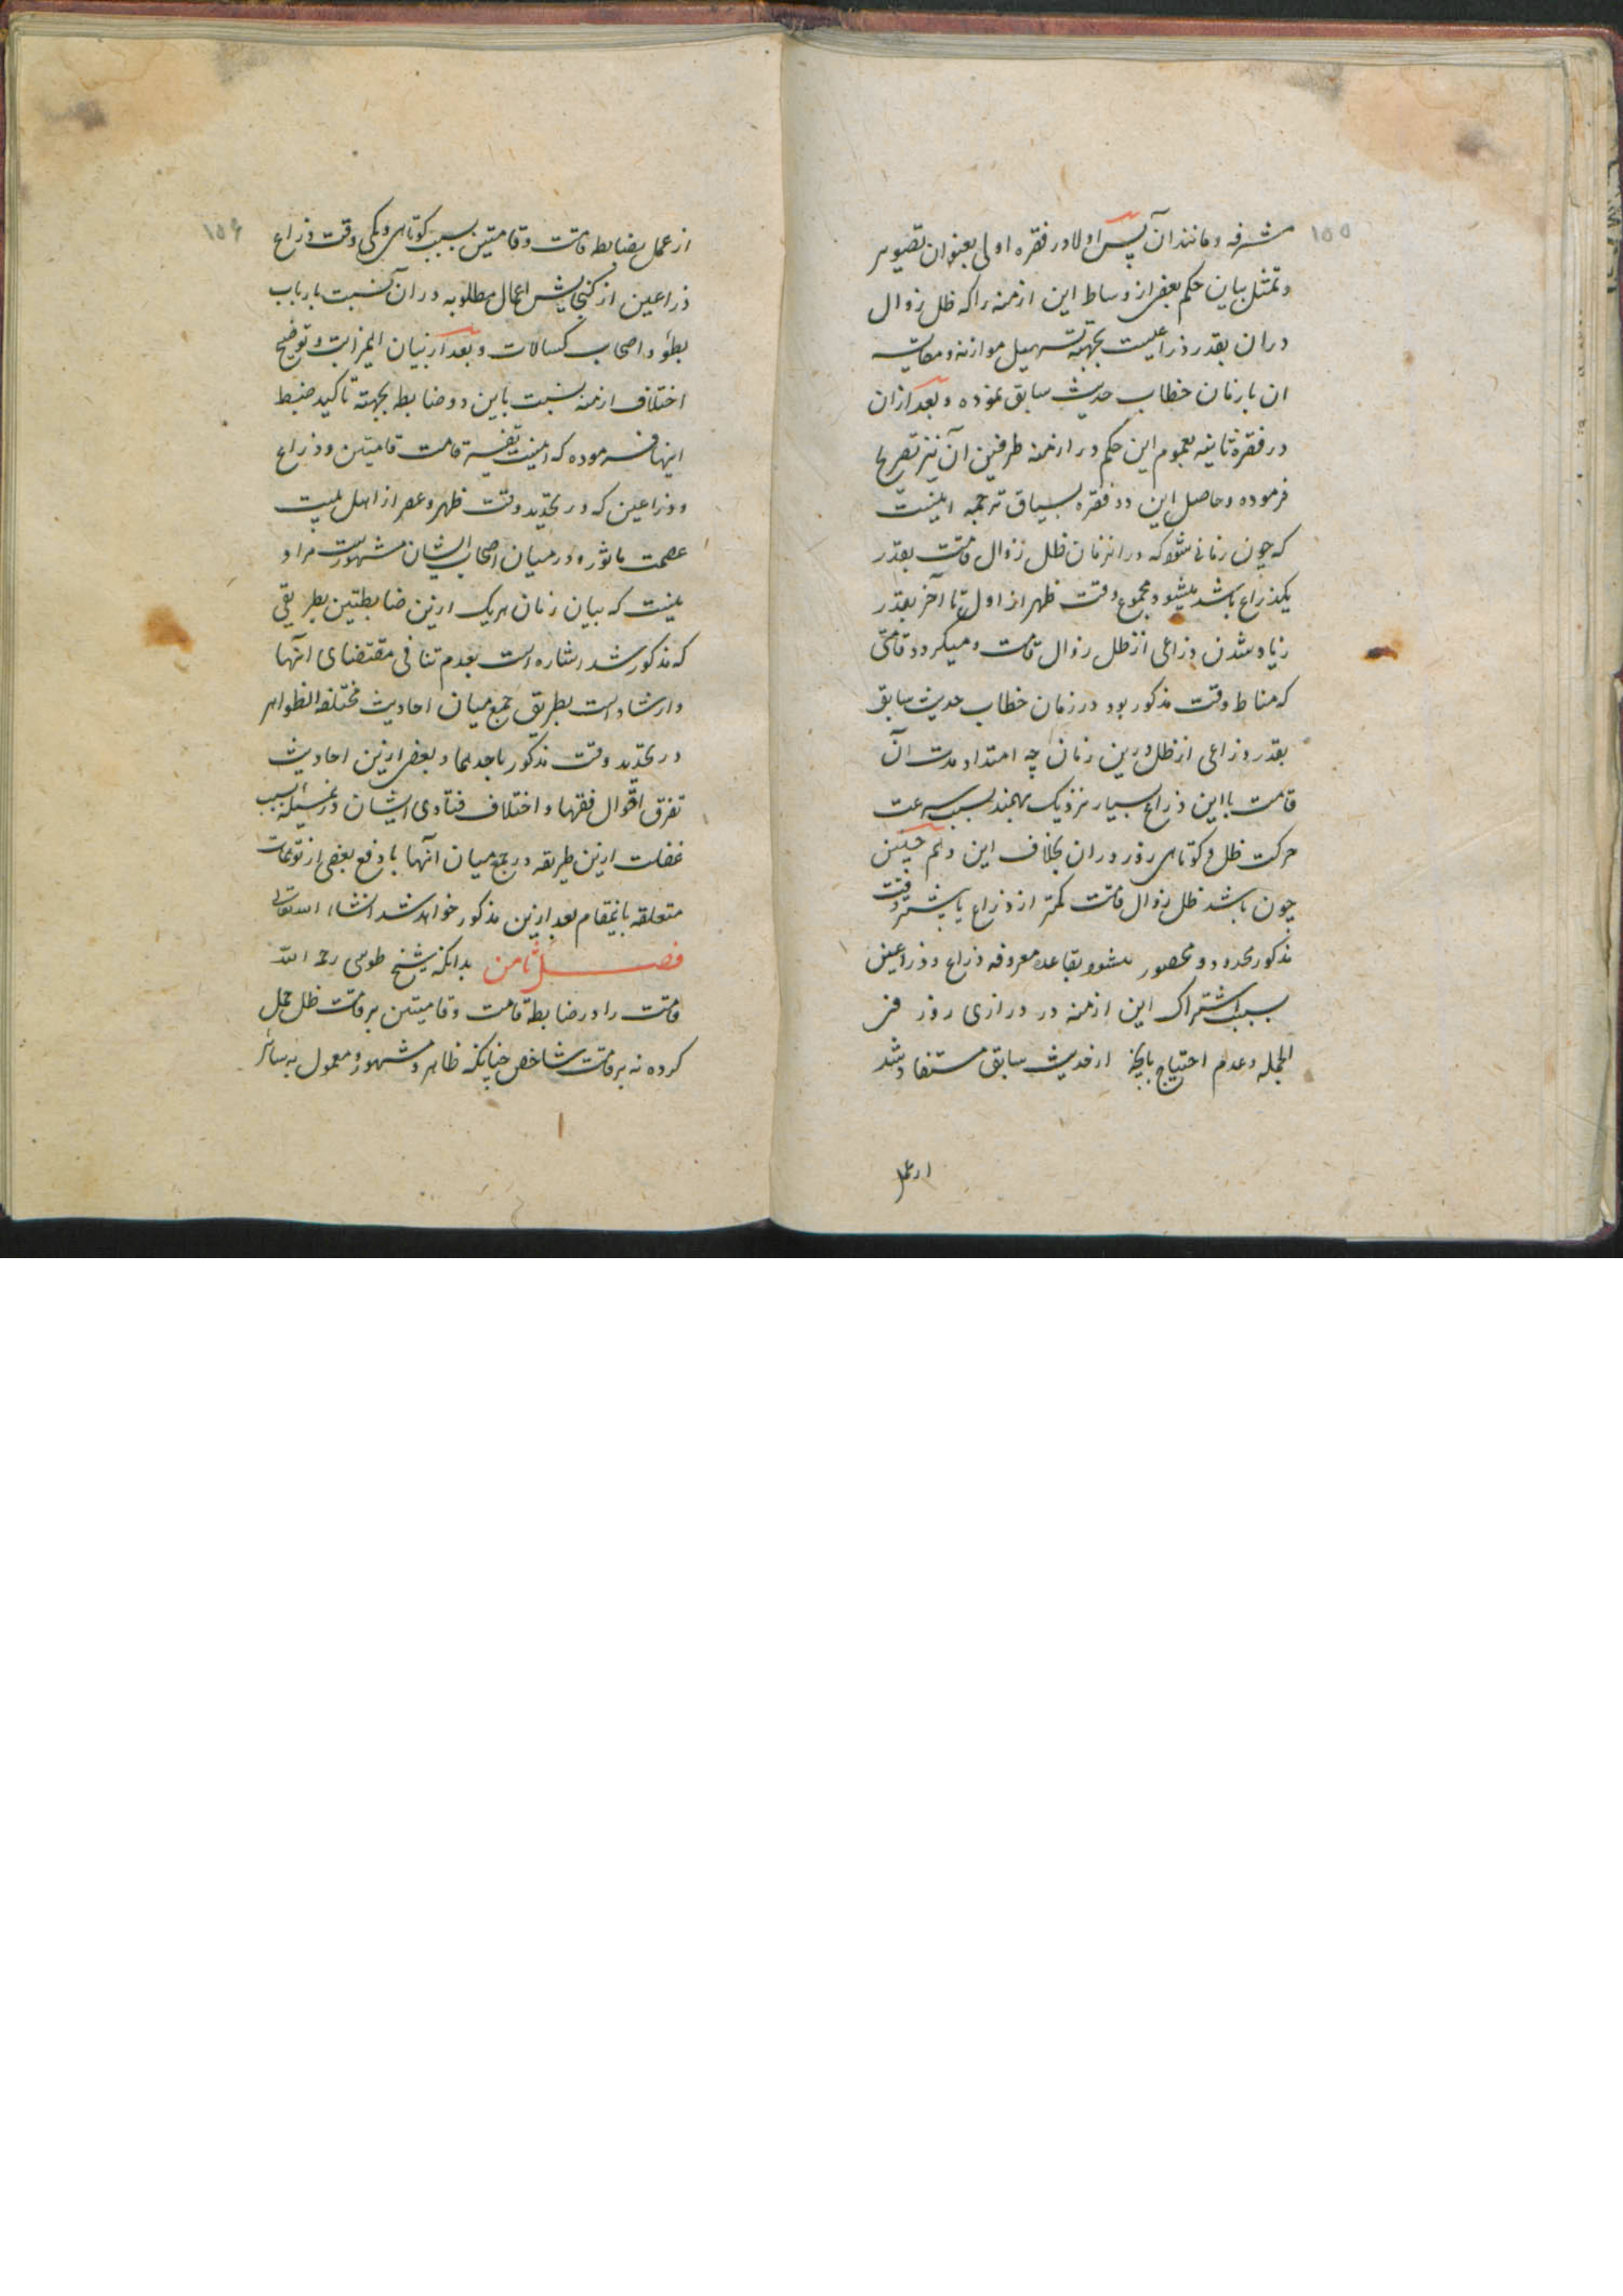 ۱۵۵
مشرفه و مانند آن پس اولا در فقره اولی بعنوان تصویر
و تمثل بیان حکم بعضی از وساط این ازمنه را که ظل زوال
در ان بقدر ذراعیست بجهة تسهیل موازنه و مقایسه
ان بازمان خطاب حدیث سابق نموده و بعد از ان
در فقره ثانیه بعموم این حکم در ازمنه طرفین آن نیز تصریح
فرموده و حاصل این دو فقره بسیاق ترجمه اینست
که چون زمانی شود که در انزمان ظل زوال قامت بقدر
یکذراع باشد میشود مجموع وقت ظهر از اول تا آخر بقدر
زیاد شدن ذراعی از ظل زوال قامت و میکردد قامتی
که مناط وقت مذکور بود در زمان خطاب حدیث سابق
بقدر ذراعی از ظل درین زمان چه امتداد مدت آن
قامت با این ذراع بسیار نزدیک بهمند بسبب سرعت
حرکت ظل و کوتاهی روز دران بخلاف این و هم چنین
چون باشد ظل زوال قامت کمتر از ذراع یا بیشتر وقت
مذکور محدود و محصور میشود بقاعده معروفه ذراع و ذراعین
بسبب اشتراک این ازمنه در درازی روز فی
الجمله و عدم احتیاج بانچه از حدیث سابق مستفاد شد
از عمل
۱۵۶
از عمل بضابطه قامت و قامتین بسبب کوتاهی و کمی وقت ذراع
ذراعین از کنجایش اعمال مطلوبه در ان نسبت بارباب
بطؤ و اصحاب کسالات و بعد از بیان اینمراتب و توضیح
اختلاف ازمنه نسبت باین دو ضابطه بجهته تاکید ضبط
اینها فرموده که اینست تفسیر قامت قامتین و ذراع
و ذراعین که در تحدید وقت ظهر و عصر از اهل بیت
عصمت ماثور و در میان اصحاب ایشان مشهورست مراد
اینست که بیان زمان هریک ازین ضابطتین بطریقی
که مذکور شد اشاره است بعدم تنافی مقتضای انها
و ارشاد است بطریق جمع میان احادیث مختلفة الظواهر
در تحدید وقت مذکور باحدهما و بعضی ازین احادیث
تفرق اقوال فقها و اختلاف فتاوی ایشان درینمسئله بسبب
غفلت ازین طریقه در جمع میان انها با دفع بعضی از توهمات
متعلقه باینمقام بعد ازین مذکور خواهد شد انشاء الله تعالی
فصل ثامن بدانکه شیخ طوسی رحمه الله
قامت را در ضابطه قامت و قامتین بر قامت ظل حمل
کرده نه بر قامت شاخص چنانکه ظاهر و مشهور و معمول به سائر